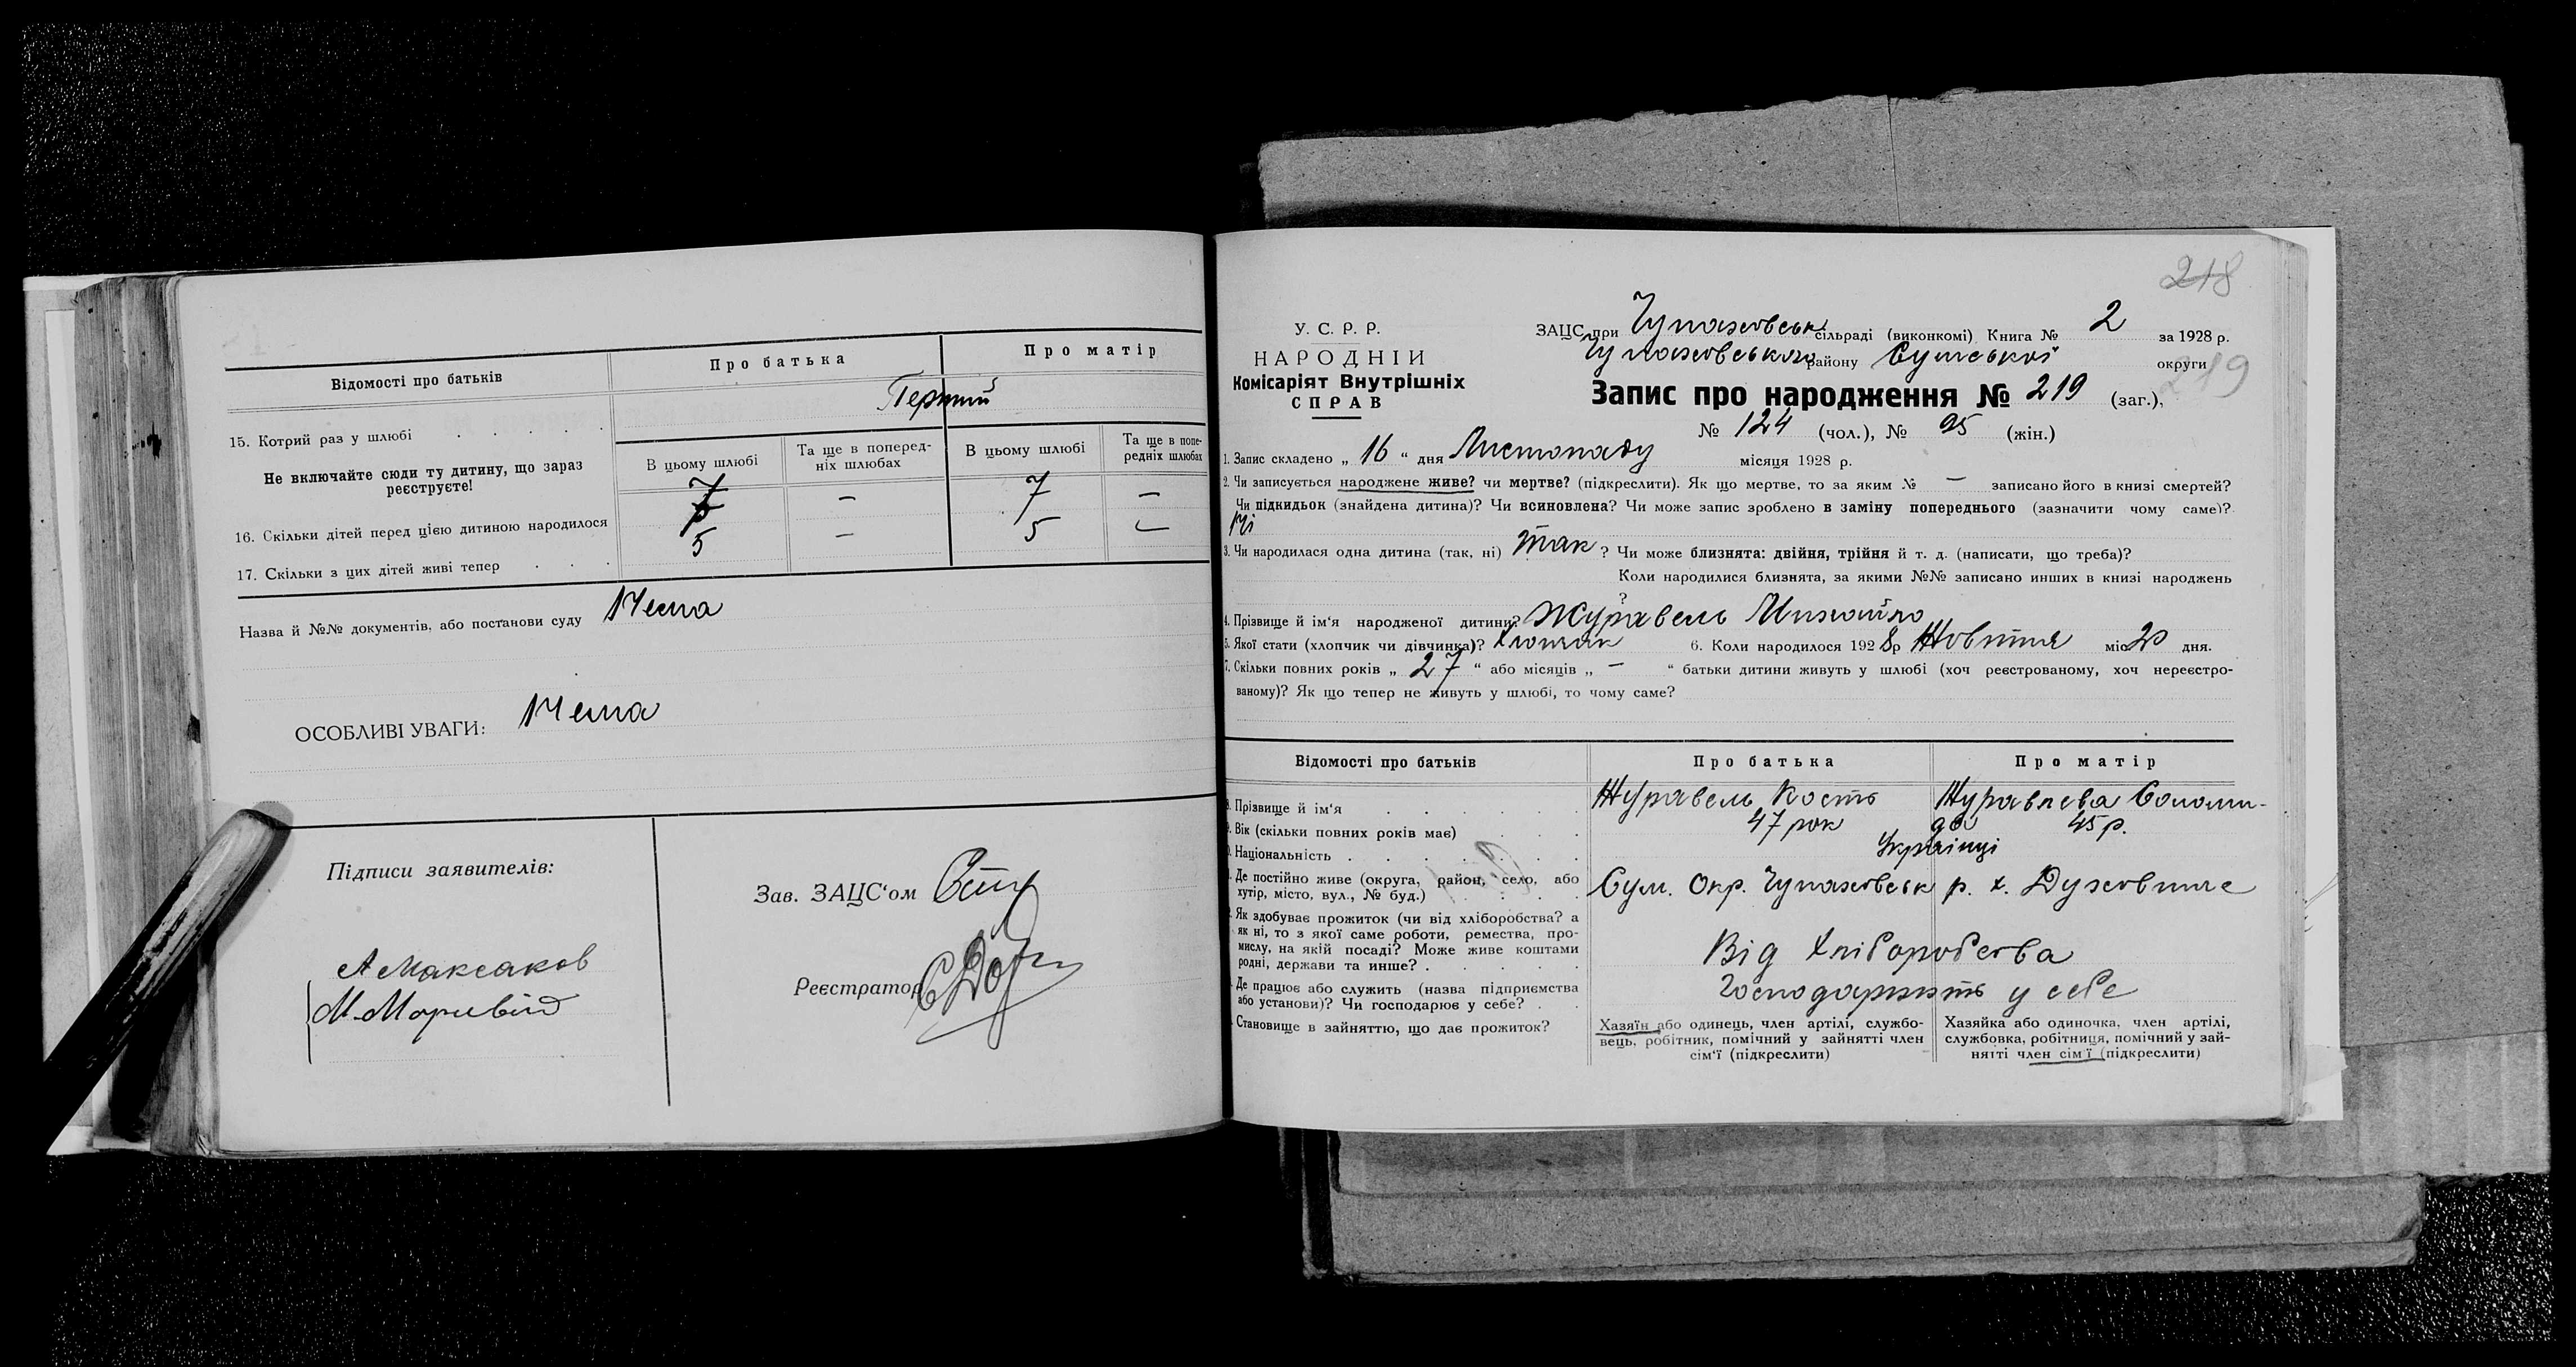 Відомості про батьків
Про батька
Про матір
15. Котрий раз у шлюбі
Перший
Не включайте сюди ту дитину, що зараз
реєструєте!
В цьому шлюбі
Та ще в поперед-
ніх шлюбах
В цьому шлюбі
Та ще в попе-
редніх шлюбах
16. Скільки дітей перед цією дитиною народилося
7 — 7 —
17. Скільки з цих дітей живі тепер
5 — 5 —
Назва й №№ документів, або постанови суду Нема
ОСОБЛИВІ УВАГИ: Нема
Підписи заявителів:
А Максаков
Зав. ЗАЦС'ом
Реєстратор
218
219
У. С. Р. Р.
НАРОДНІЙ
Комісаріят Внутрішніх
СПРАВ
ЗАЦС при Чупаховськ. сільраді (виконкомі) Книга № 2 за 1928 р.
Чупаховського району Сумської округи
Запис про народження № 219 (заг.),
№ 124 (чол.), № 95 (жін.)
1. Запис складено „ 16 “ дня Листопаду місяця 1928 р.
2. Чи записується народжене живе? чи мертве? (підкреслити). Як що мертве, то за яким № — записано його в книзі смертей?
Чи підкидьок (знайдена дитина)? Чи всиновлена? Чи може запис зроблено в заміну попереднього (зазначити чому саме)?
Ні
3. Чи народилася одна дитина (так, ні) так ? Чи може близнята: двійня, трійня й т. д. (написати, що треба)?
Коли народилися близнята, за якими №№ записано инших в книзі народжень
?
4. Прізвище й ім'я народженої дитини? Журавель Михайло
5. Якої стати (хлопчик чи дівчинка)? Хлопчик 6. Коли народилося 1928 р Жовтня міс 20 дня.
7. Скільки повних років „ 27 “ або місяців „ — “ батьки дитини живуть у шлюбі (хоч реєстрованому, хоч нереєстро-
ваному)? Як що тепер не живуть у шлюбі, то чому саме?
Відомості про батьків
Про батька
Про матір
8. Прізвище й ім'я
Журавель Кость
Журавлева Соломи-
да
9. Вік (скільки повних років має)
47 рок
45 р.
Національність
Українці
Де постійно живе (округа, район, село, або
хутір, місто, вул., № буд.)
Сум. Окр. Чупаховськ р. х. Духовище
Як здобуває прожиток (чи від хліборобства? а
як ні, то з якої саме роботи, ремества, про-
мислу, на якій посаді? Може живе коштами
родні, держави та инше?
Від Хліборобства
Де працює або служить (назва підприємства
або установи)? Чи господарює у себе?
Господарюють у себе
Становище в зайняттю, що дає прожиток?
Хазяїн або одинець, член артілі, службо-
вець, робітник, помічний у зайнятті член
сім'ї (підкреслити)
Хазяйка або одиночка, член артілі,
службовка, робітниця, помічний у зай-
нятті член сім'ї (підкреслити)